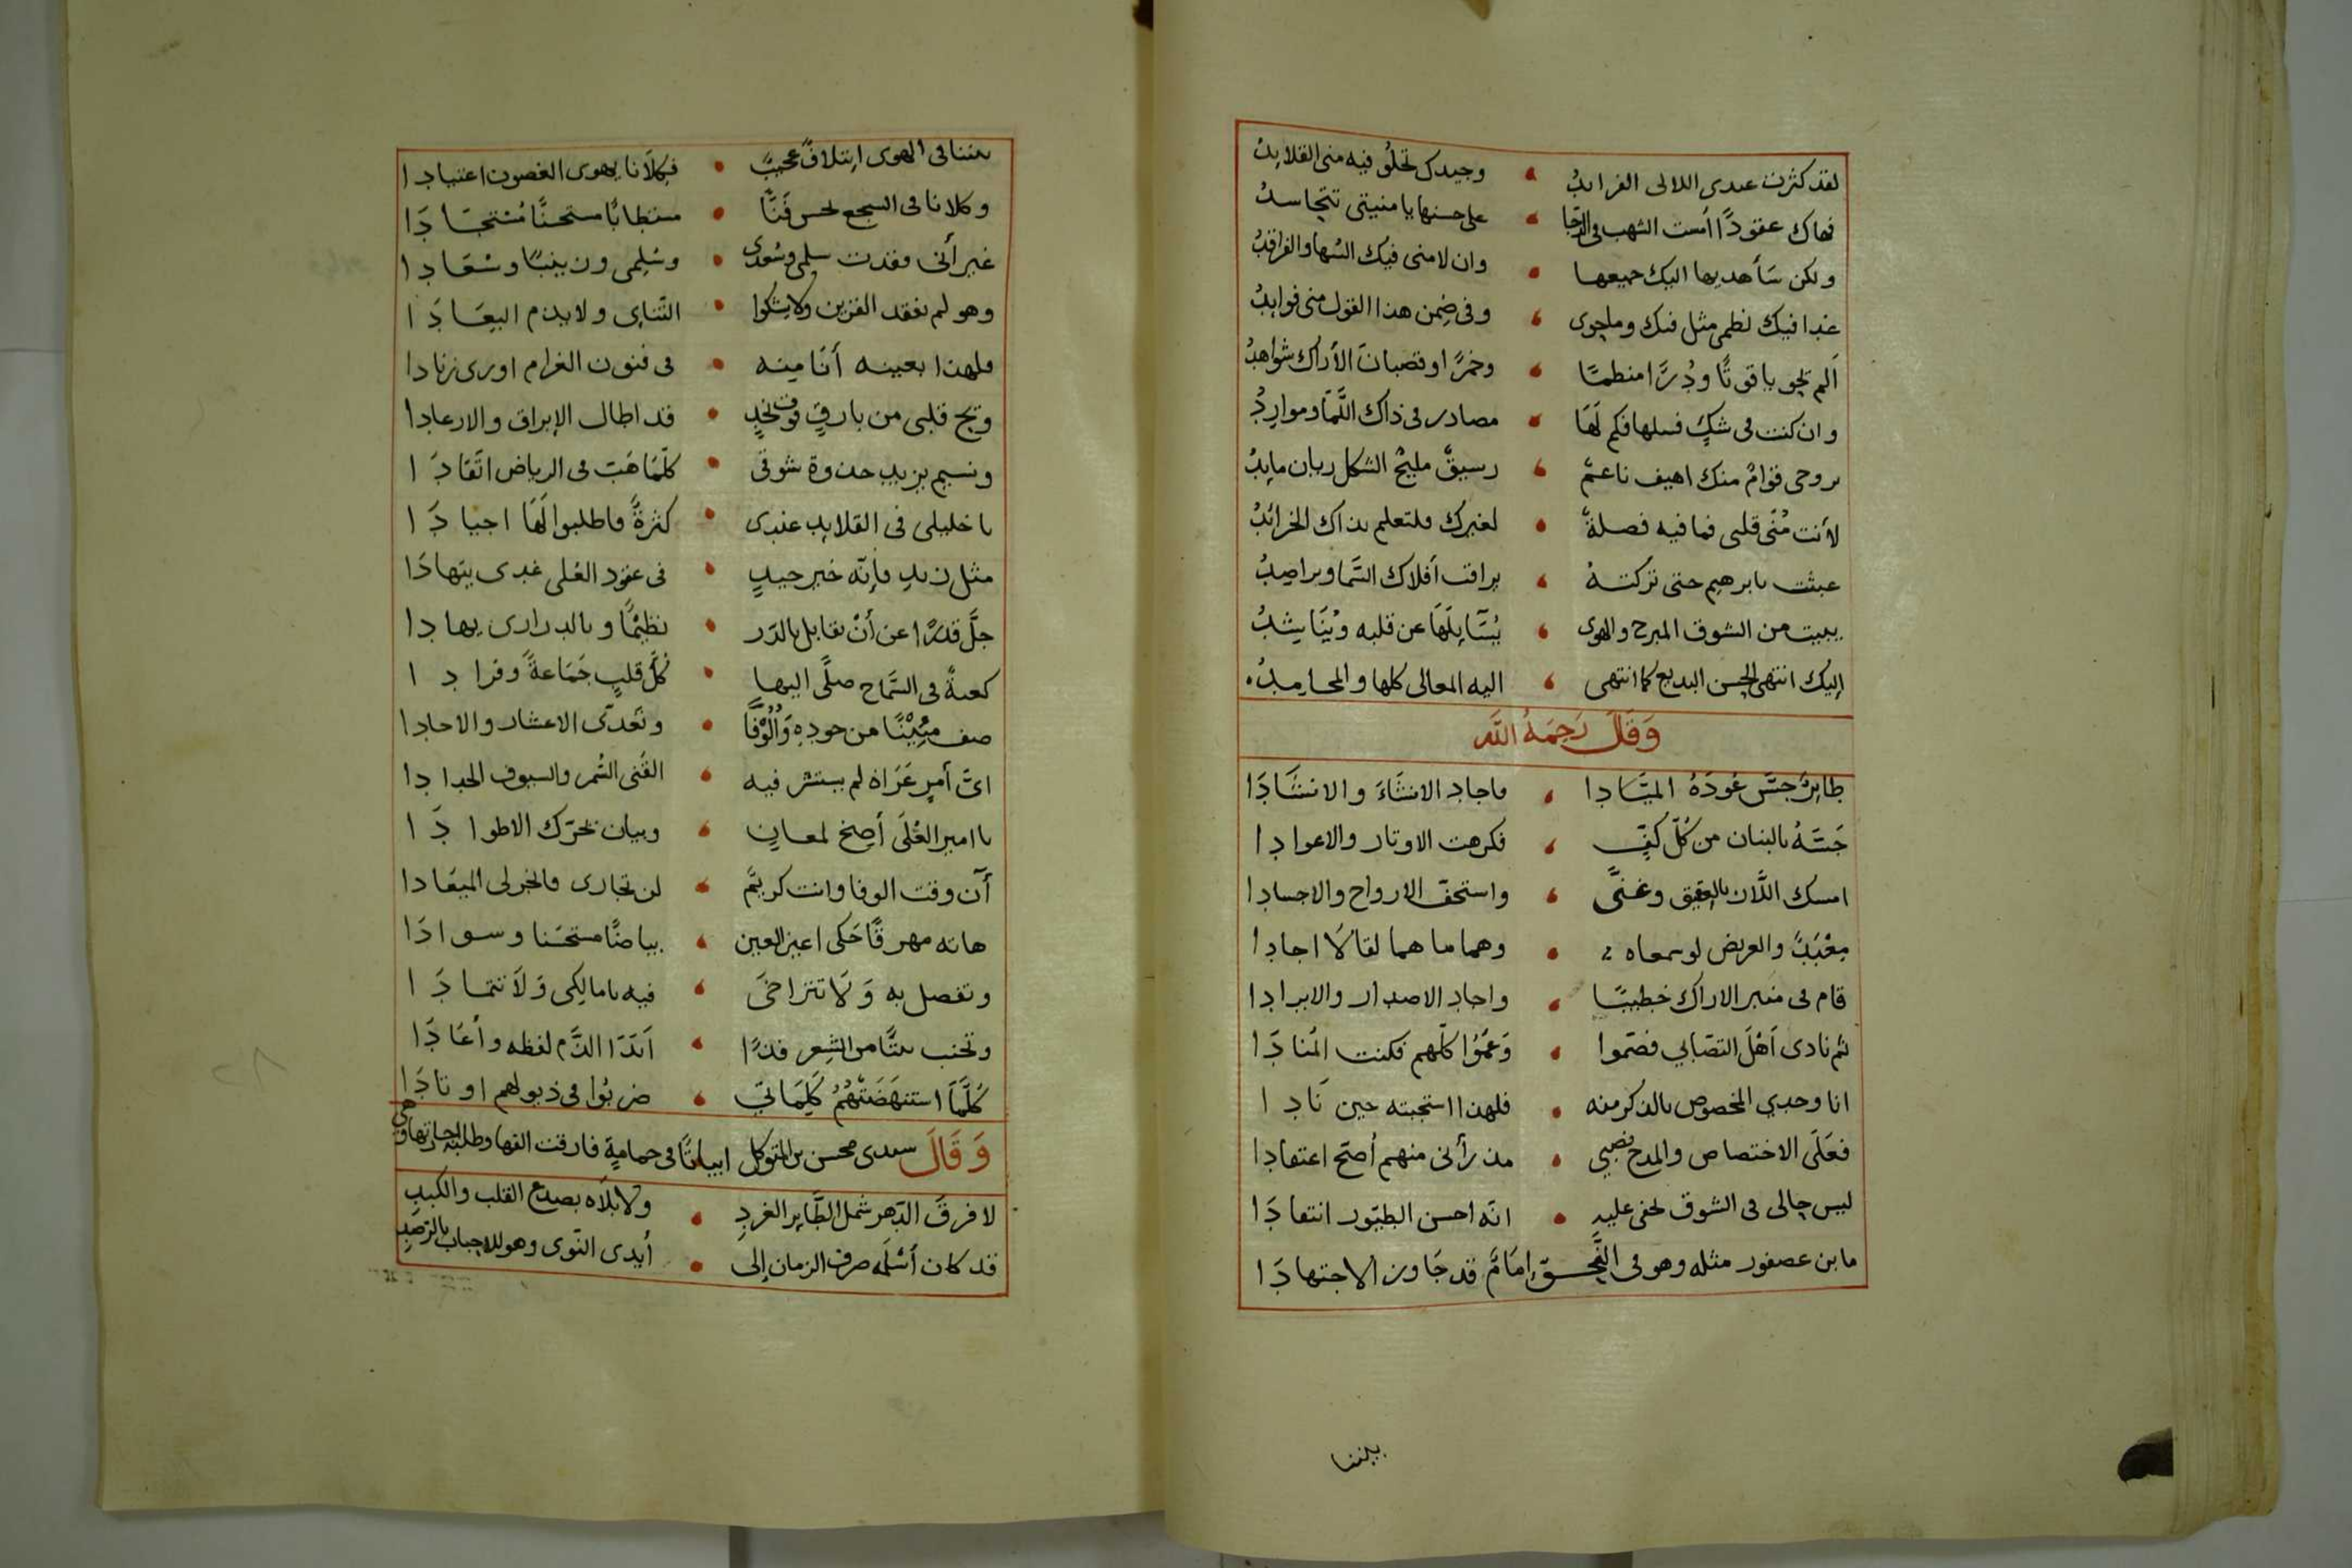 لقد كثرت عندى اللالى الفرائدُ ، وجيدك تحلُو فيه منى القلايدُ
فهاك عقودًا أمست الشهب فى الدّجا ، على حسنها يا منيتى تتحاسدُ
ولكن سَأهديها اليك جميعها ، وان لامنى فيك السُها والفراقدُ
غدا فيك نظمى مثل فيك وما حوى ، وفى ضِمن هذا القول منى فوايدُ
اَلم تحو ياقوتًا ودُرًّا منظمًا ، وخمرًا وقضبانَ الأراك شواهدُ
وان كنت فى شكٍ فسلها فكم لَهَا ، مصادر فى ذاك اللَّمَا ومواردُ
بروحى قوامٌ منك اهيف ناعمٌ ، رسيقٌ مليحُ الشكل ريان مايدُ
لأنت مُنَى قلبى فما فيه فصلةٌ ، لغيرك فلتعلم بذاك الخرائدُ
عبثت بابرهيم حتى تركتهُ ، يراقب أفلاك السَّما ويراصِدُ
يبيت من الشوق المبرح والهوى ، يُسَآيِلَهَا عن قلبه ويُنَاشِدُ
إليك انتهى الحسن البديع كما انتهى ، اليه المعالى كلها والمحامِدُ
وَقَالَ رَحِمَهُ اللّه
طايرٌ جسَّ عُودَهُ الميَّادا ، فاجاد الانشَاءَ والانشَادَا
جَسَّهُ بالبنان من كُلّ كفٍّ ، فكرهت الاوتار والاعوادا
امسك اللَّان بالعقيق وغنىَّ ، واستخف الارواح والاجسادا
مِعْبَدٌ والعريض لو سمعاه ، وهما ما هما لقالَا اجادا
قام فى منبر الاراك خطيبًا ، واجاد الاصدار والايرادا
ثم نادى اَهْلَ التصَابي فصَموا ، وَعَمُوا كلّهم فكنت المُنادَا
انا وحدي المخصوص بالذكر منه ، فلهذا استجبته حين نَادا
فعَلَى الاختصاص والمدح نصبي ، مذ رأنى منهم أصَحّ اعتقادا
ليس حالى فى الشوق تخفى عليهِ ، انّه احسن الطيّور انتقادَا
ما بن عصفور مثله وهو فى النَّحـــو إمَامٌ قد جَاوز الاجتهادَا
بيننا
بيننا فى الهوى ايتلافٌ عجيبٌ ، فكِلَانا يهوى الغصون اعتيادا
وكلانا فى السجع يحسن فَنًّا ، مستطابًا مستحسنًا مُسْتجَادَا
غير أنى فقدت سلمى وسُعدى ، وسُليمى وزينبًا وسُعَادا
وهو لم يفقد القرين ولا يشكوا ، التَّنائى ولا يذم البِعَادَا
فلهذا بعينه أنَا مِنه ، فى فنون الغرام اورى زنادا
ويح قلبى من بارقٍ فوق نجدٍ ، قد اطال الإبراق والارعادا
ونسيم يزيد جذوة شوقى ، كلّمَا هَبّ فى الرياض اتّقادَا
يا خليلى فى القلايد عندى ، كثرةً فاطلبوا لَهَا اجيادَا
مثل زيدٍ فإنّه خير جيدٍ ، فى عقود العُلى غدى يتهادَا
جلَّ قدرًا عن أنْ يقابل بالدّر ، نظيمًا وبالدرارى يهادا
كعبةٌ فى السَّماح صلَّى اليها ، كُلُّ قلبٍ جَمَاعةً وفرادا
صف مِئِيْنًا من جودِهِ وَأُلُوْفًا ، وتعدّى الاعشار والاحادا
اىّ أمرٍ عَرَاهُ لم يستشر فيه ، القَنى السُّمر والسيوف الحدادا
يا امير العُلَى أصِخ لمعانٍ ، وبيان تحرّك الاطوادَا
آن وقت الوفا وانت كريمٌ ، لن تجارى فانجز لى الميعادا
هاته مهرقًا حَكى اعين العين ، بياضًا مستحسَنا وسوادَا
وتفصل به وَلَا تتراخىَ ، فيه يا مالِكِى وَلَا تتمادَا
وتجنب بيتًا من الشِعر فدًا ، اَبْدَا الذَّم لفظه وأعَادَا
كُلَّمَا استنهَضَتْهُمُ كَلِمَاتي ، ضربُوا فى ذيولهم اوتادَا
وَقَالَ سيدى محسن بن المتوكل ابياتًا فى حمامةٍ فارقت الفها وطلبه اجازتها وهى
لا فرقَ الدّهر شمل الطَّاير الغردِ ، ولا بلَاه بصدع القلب والكبدِ
قد كان أسْلَمه صرف الزمان إلى ، أيدى النّوى وهو للاحباب بالرّصدِ